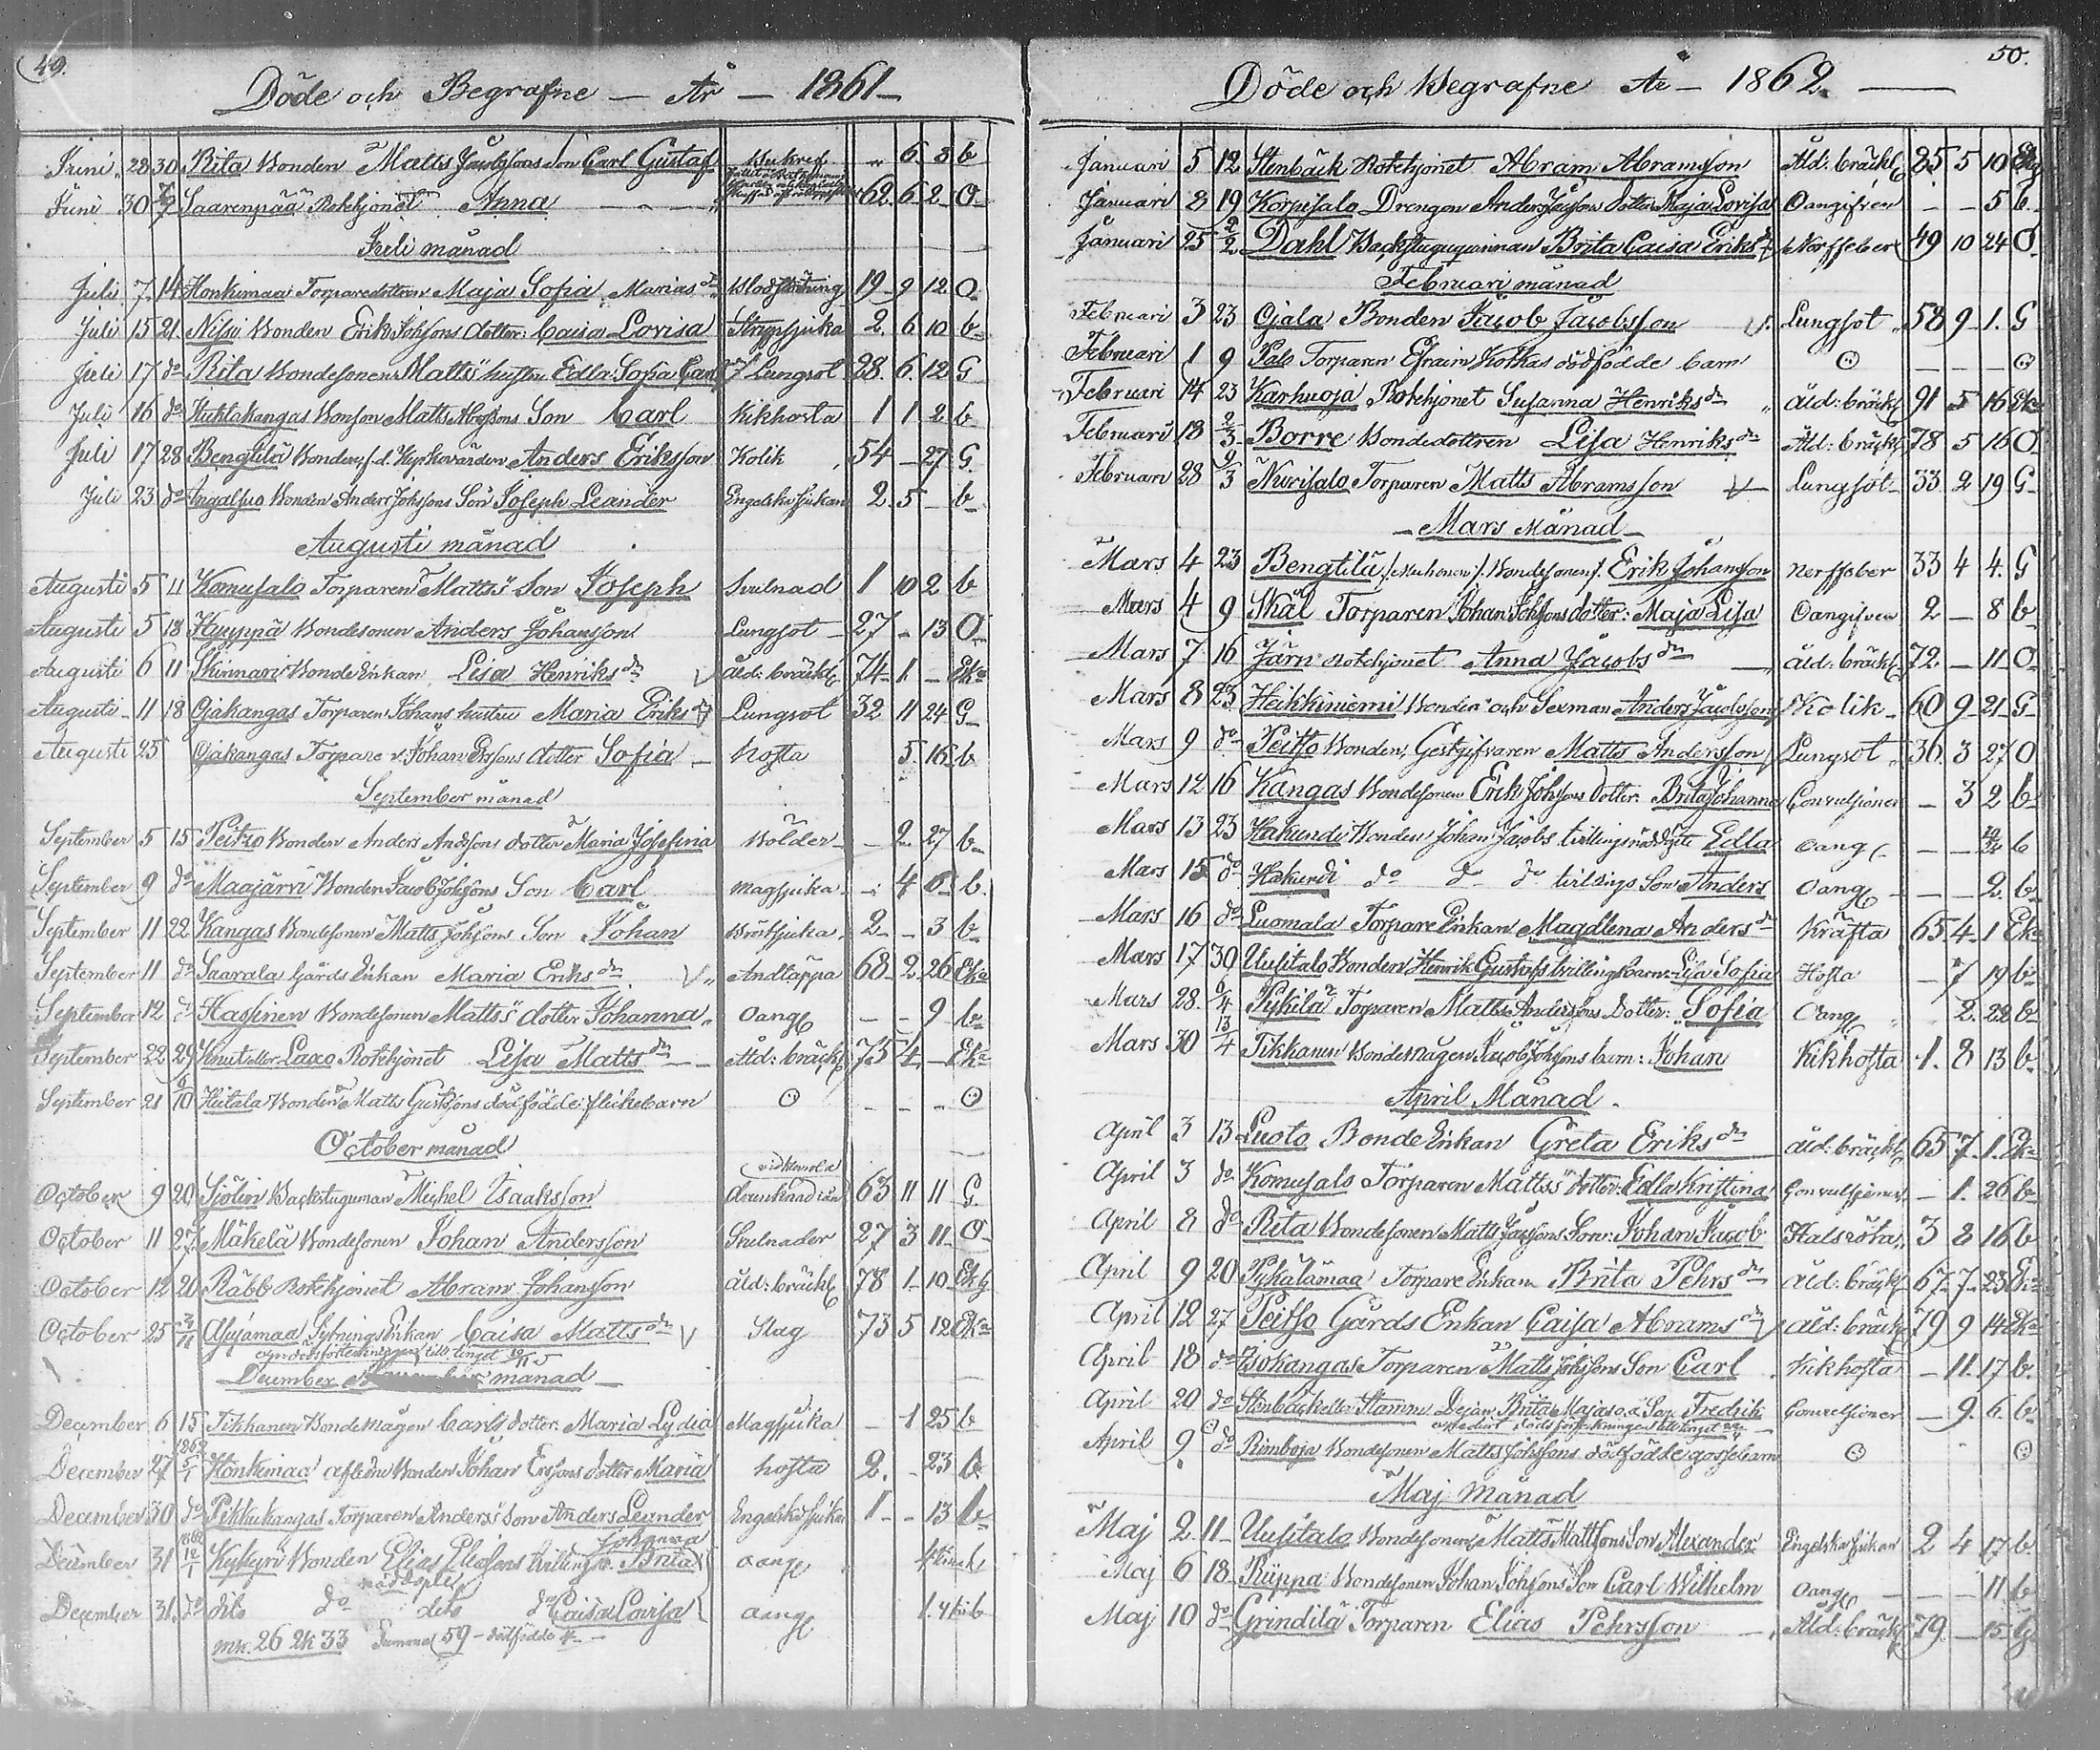 49.
Döde och Begrafne — År — 1861 —
Juni 28 30 Rita Bonden Matts Jacobssons Son Carl Gustaf 6 8 b
Juni 30 7/7 Saarenpää Rotehjonet Anna 62 6 2 O
Juli månad
Juli 7 14 Honkimaa Torparedottren Maja Sofia Marias dr Blodstörtning 19 9 12 O
Juli 15 21 Bonden Erik Johssons dotter: Caisa Lovisa Strypsjuka 2 6 10 b
Juli 17 do Rita Bondesonen Matts's hustru Edla Sofia Carls Lungsot 28 6 12 G
Juli 16 do Huhtakangas Bonson Matts Abrssons Son Carl Kikhosta 1 1 2 b
Juli 17 28 Bengtilä Bonden, f.d. Kyrkovärden Anders Eriksson Kolik 54 — 27 G
Juli 23 do Bonden Anders Johssons Son Joseph Leander Engelska sjukan 2 5 — b
Augusti månad
Augusti 5 11 Komusalo Torparen Matts's Son Joseph Svulnad 1 10 2 b
Augusti 5 18 Kyyppä Bondesonen Anders Johansson Lungsot 27 — 13 O
Augusti 6 11 Skinnari Bonde Enkan Lisa Henriks dr åld: bräckl 74 1 — Eka
Augusti 11 18 Ojakangas Torparen Johans hustru Maria Eriks dr Lungsot 32 11 24 G
Augusti 25 Ojakangas Torpare v. Johan Erssons dotter Sofia hosta 5 16 b
September månad
September 5 15 Peitzo Bonden Anders Andssons dotter Maria Josefina Bölder — 2 27 b
September 9 do Maajärvi Bonden Jacob Johssons Son Carl magsjuka — 4 6 b
September 11 22 Kangas Bondesonen Matts Johssons Son Johan Bröstsjuka 2 — 3 b
September 11 do Saarala Gårds Enkan Maria Eriks dr Andtäppa 68 2 26 Eka
September 12 do Hassinen Bondesonen Matts's dotter Johanna Oang — — 9 b
September 22 29 Knut eller Laxo Rotehjonet Lisa Matts dr Åld: bräckl 75 4 — Eka
September 21 6/10 Heitala Bonden Matts Gustssons dödfödde flickebarn ⊙ — — — ⊙
October månad
October 9 20 Sjölin Backstuguman Michel Isaaksson 63 11 11 G
October 11 27 Mäkelä Bondesonen Johan Andersson Svulnader 27 3 11 O
October 12 20 Räbb Rotehjonet Abram Johansson åld: bräckl 78 1 10 Ekg
October 25 3/11 Alajamaa Sytnings Enkan Caisa Matts dr Slag 73 5 12 Eka
December månad
December 6 15 Tikkanen Bondemågen Carls dotter Maria Lydia Magsjuka — 1 25 b
December 27 1862 5/1 Honkimaa aflidne Bonden Johan Erssons dotter Maria hosta 2 — 23 b
December 30 do Pikkukangas Torparen Anders's Son Anders Leander Engelska sjukan 1 — 13 b
December 31 1862 12/1 Kykyri Bonden Elias Eliassons Brita Johanna oang b
nöddöpte
December 31 do dito do dito do Caisa Lovisa oang b
mk. 26 2k 33 Summa 59 — dödfödde
50.
Döde och Begrafne År — 1862. —
Januari 5 12 Stenbäck Rotehjonet Abram Abramsson Åld: bräckl 85 5 10 Ekg
Januari 8 19 Korpisalo Drengen Anders Jacssons dotter Maja Lovisa Oangifven — — 5 b
Januari 25 2/2 Dahl Backstuguqvinnan Brita Caisa Eriks dr Nerffeber 49 10 24 O
Februari månad
Februari 3 23 Ojala Bonden Jacob Jacobsson Lungsot 58 9 1 G
Februari 1 9 Palo Torparen Efraim Kothas dödfödde barn ⊙ — — ⊙
Februari 14 23 Karhuoja Rotehjonet Susanna Henriks dr åld: bräckl 91 5 16 Eka
Februari 18 2/3 Borre Bondedottren Lisa Henriks dr Åld: bräckl 78 5 16 O
Februari 28 9/3 Nurisalo Torparen Matts Abramsson Lungsot 33 2 19 G
Mars Månad
Mars 4 23 Bengtilä Bondesonen Erik Johansson Nerffeber 33 4 4 G
Mars 4 9 Skäl Torparen Johan Johssons dotter: Maja Lisa Oangifven 2 — 8 b
Mars 7 16 Järn Rotehjonet Anna Jacobs dr åld: bräckl 72 — 11 O
Mars 8 23 Heikkiniemi Bonden och Sexman Anders Jacobsson Kolik 60 9 21 G
Mars 9 do Peitso Bonden, Gestgifvaren Matts Andersson Lungsot 36 3 27 O
Mars 12 16 Kangas Bondesonen Erik Johssons Dotter: Brita Johanna Convulsioner — 3 2 b
Mars 13 23 Hakundi Bonden Johan Jacobs tvillings nöddöpte Edla oang — — b
Mars 15 do Hakundi do do do tvillings Son Anders oang — — 2 b
Mars 16 do Luomala Torpare Enkan Magdlena Anders dr Kräfta 65 4 1 Eka
Mars 17 30 Uusitalo Bonden Henrik Gustafs tvillingsbarn Lisa Sofia Hosta — 7 19 b
Mars 28 6/4 Pykilä Torparen Matts Anderssons Dotter: Sofia Oang 2 22 b
Mars 30 13/4 Tikkanen Bondemågen Jacob Johssons barn: Johan Kikhosta 1 8 13 b
April Månad
April 3 13 Luoto Bonde Enkan Greta Eriks dr åld: bräckl 65 7 1 Eka
April 3 do Komusalo Torparen Matts's dotter: Edla Kristina Convulsioner — 1 26 b
April 8 do Rita Bondesonen Matts Jacssons Son: Johan Jacob Halsröta 3 8 16 b
April 9 20 Pyhälämaa Torpare Enkan Brita Pehrs dr åld: bräckl 67 7 23 Eka
April 12 27 Peitso Gårds Enkan Caisa Abrams dr åld: bräckl 79 9 14 Eka
April 18 do Isokangas Torparen Matts Johssons Son Carl Kikhosta — 11 17 b
April 20 do Stenbäck eller Stamm Dejan Brita Majas o.ä Son Fredrik Convulsioner — 9 6 b
April 9 do Rimboja Bondesonen Matts Johssons dödfödde gossebarn ⊙ ⊙
Maj månad
Maj 2 11 Uusitalo Bondesonen Matts Mattssons Son Alexander Engelska sjukan 2 4 17 b
Maj 6 18 Küppa Bondesonen Johan Johssons Son Carl Wilhelm oang — — 11 b
Maj 10 do Grindilä Torparen Elias Pehrsson Åld: bräckl 79 — 15 G